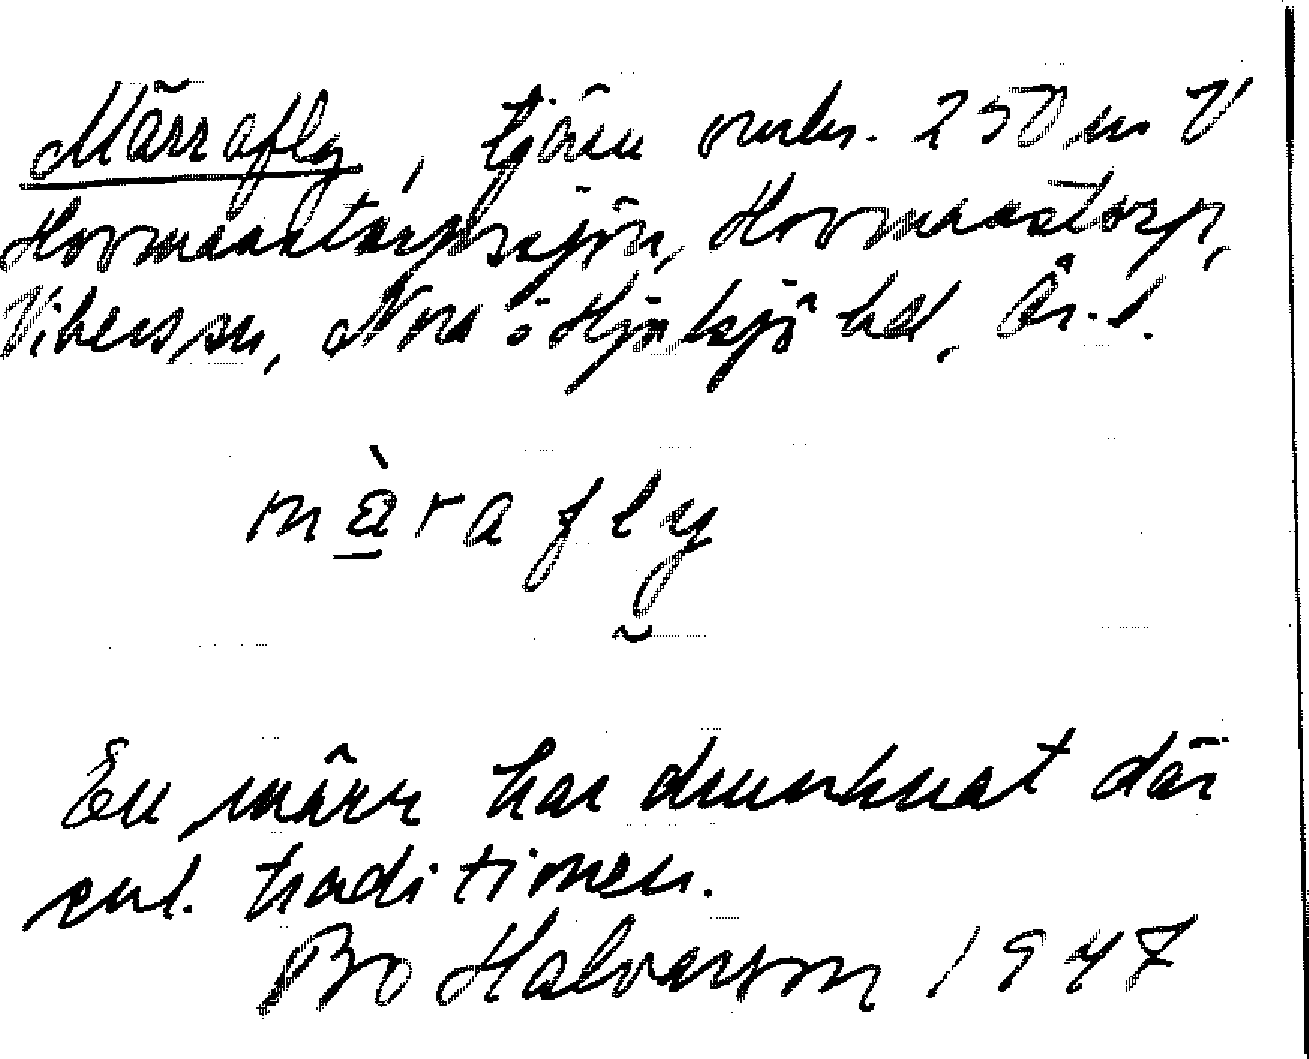 Märrafly, tjärn omkr. 250 m V
Hovmanstorpssjön, Hovmanstorp,
Vikers sn, Nora o Hjulsjö bd, Ör. l.
màrafly
En märr har drunknat där
enl. traditionen.
Bo Halvarson 1947